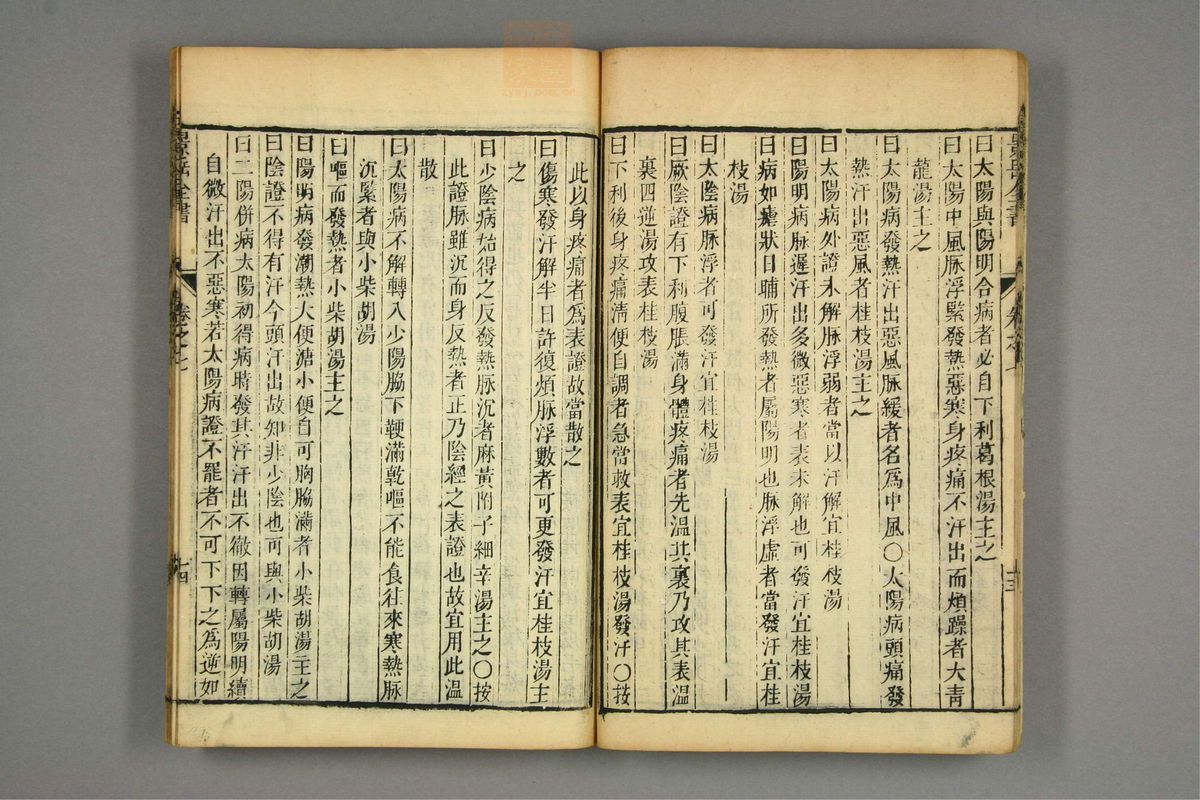 曰太陽與陽明合病者必自下利葛根湯主之
曰太陽中風脉浮緊發熱惡寒身疼痛不汗出而煩躁者大青
龍湯主之
曰太陽病發熱汗出惡風脉緩者名為中風〇太陽病頭痛發
熱汗出惡風者桂枝湯主之
曰太陽病外證未解脉浮弱者當以汗解宜桂枝湯
曰陽明病脉遲汗出多微惡寒者表未解也可發汗宜桂枝湯
曰病如瘧狀日晡所發熱者屬陽明也脉浮虛者當發汗宜桂
枝湯
曰太陰病脉浮者可發汗宜桂枝湯
曰厥陰證有下利腹脹滿身體疼痛者先溫其裏乃攻其表溫
裏四逆湯攻表桂枝湯
曰下利後身疼痛清便自調者急當救表宜桂枝湯發汗〇按
此以身疼痛者為表證故當散之
曰傷寒發汗解半日許復煩脉浮數者可更發汗宜桂枝湯主
之
曰少陰病始得之反發熱脉沉者麻黃附子細辛湯主之〇按
此證脉雖沉而身反熱者正乃陰經之表證也故宜用此溫
散
曰太陽病不解轉入少陽脇下鞕滿乾嘔不能食往來寒熱脉
沉緊者與小柴胡湯
曰嘔而發熱者小柴胡湯主之
曰陽明病發潮熱大便溏小便自可胸脇滿者小柴胡湯主之
曰陰證不得有汗今頭汗出故知非少陰也可與小柴胡湯
曰二陽併病太陽初得病時發其汗汗出不徹因轉屬陽明續
自微汗出不惡寒若太陽病證不罷者不可下下之為逆如
景岳全書
卷之七
十四